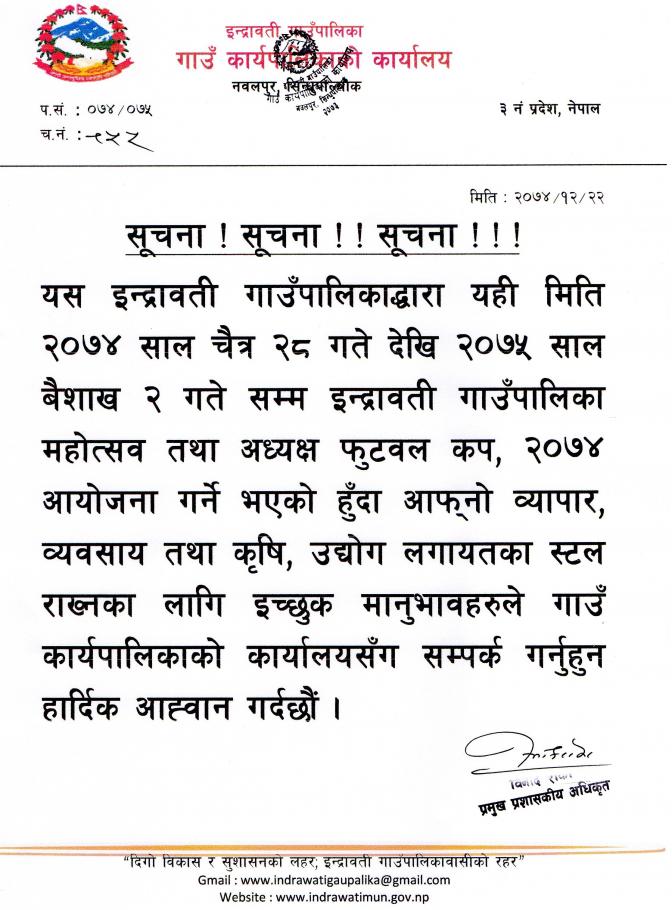 इन्द्रावती गाउँपालिका
गाउँ कार्यपालिकाको कार्यालय
नवलपुर, सिन्धुपाल्चोक
प.सं. : ०७४/०७५
३ नं प्रदेश, नेपाल
च.नं. : ५५२
मिति : २०७४/१२/२२
सूचना ! सूचना !! सूचना !!!
यस इन्द्रावती गाउँपालिकाद्धारा यही मिति
२०७४ साल चैत्र २८ गते देखि २०७५ साल
बैशाख २ गते सम्म इन्द्रावती गाउँपालिका
महोत्सव तथा अध्यक्ष फुटवल कप, २०७४
आयोजना गर्ने भएको हुँदा आफ्‌नो व्यापार,
व्यवसाय तथा कृषि, उद्योग लगायतका स्टल
राख्नका लागि इच्छुक मानुभावहरुले गाउँ
कार्यपालिकाको कार्यालयसँग सम्पर्क गर्नुहुन
हार्दिक आह्वान गर्दछौं ।
प्रमुख प्रशासकीय अधिकृत
“दिगो विकास र सुशासनको लहर; इन्द्रावती गाउँपालिकावासीको रहर”
Gmail : www.indrawatigaupalika@gmail.com
Website : www.indrawatimun.gov.np